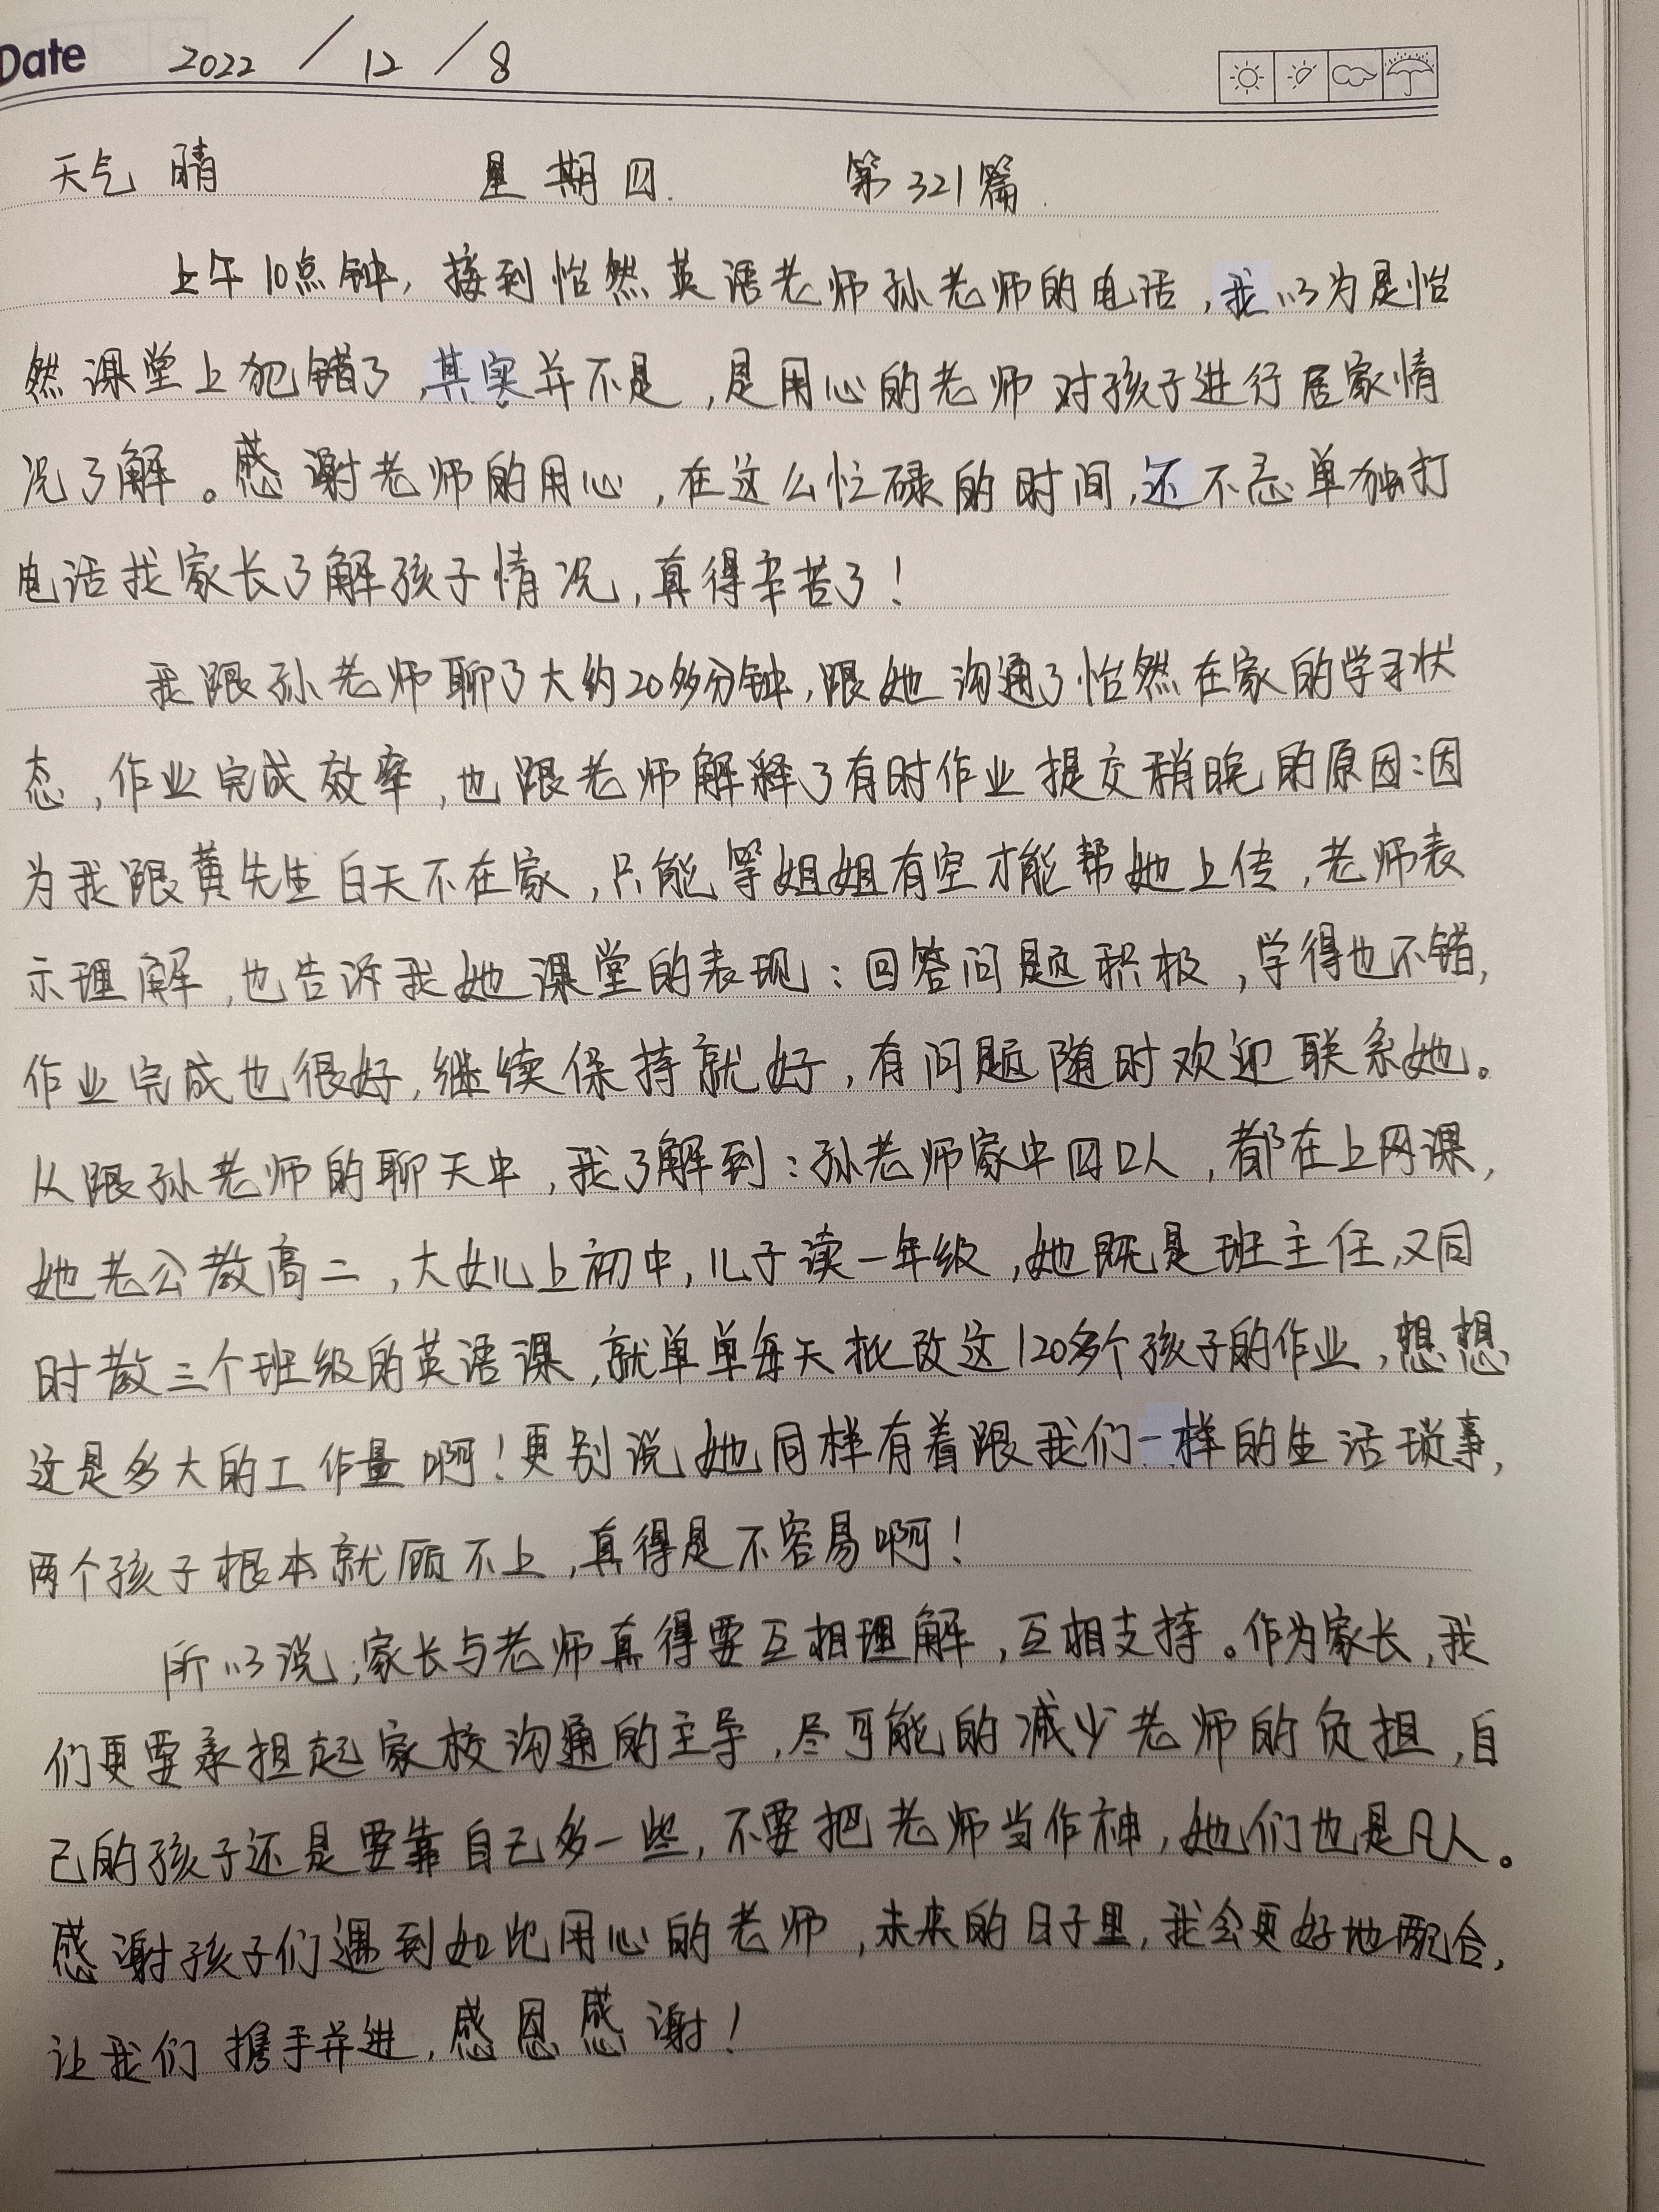 Date 2022 / 12 / 8
天气 晴 星期四. 第321篇.
上午10点钟, 接到怡然英语老师孙老师的电话,我以为是怡
然课堂上犯错了,其实并不是,是用心的老师对孩子进行居家情
况了解。感谢老师的用心,在这么忙碌的时间,还不忘单独打
电话找家长了解孩子情况,真得辛苦了!
我跟孙老师聊了大约20多分钟,跟她沟通了怡然在家的学习状
态,作业完成效率,也跟老师解释了有时作业提交稍晚的原因:因
为我跟黄先生白天不在家,只能等姐姐有空才能帮她上传,老师表
示理解,也告诉我她课堂的表现:回答问题积极,学得也不错,
作业完成也很好,继续保持就好,有问题随时欢迎联系她。
从跟孙老师的聊天中,我了解到:孙老师家中四口人,都在上网课,
她老公教高二,大女儿上初中,儿子读一年级,她既是班主任,又同
时教三个班级的英语课,就单单每天批改这120多个孩子的作业,想想
这是多大的工作量啊!更别说她同样有着跟我们一样的生活琐事,
两个孩子根本就顾不上,真得是不容易啊!
所以说,家长与老师真得要互相理解,互相支持。作为家长,我
们更要承担起家校沟通的主导,尽可能的减少老师的负担,自
己的孩子还是要靠自己多一些,不要把老师当作神,她们也是凡人。
感谢孩子们遇到如此用心的老师,未来的日子里,我会更好地配合,
让我们携手并进,感恩感谢!